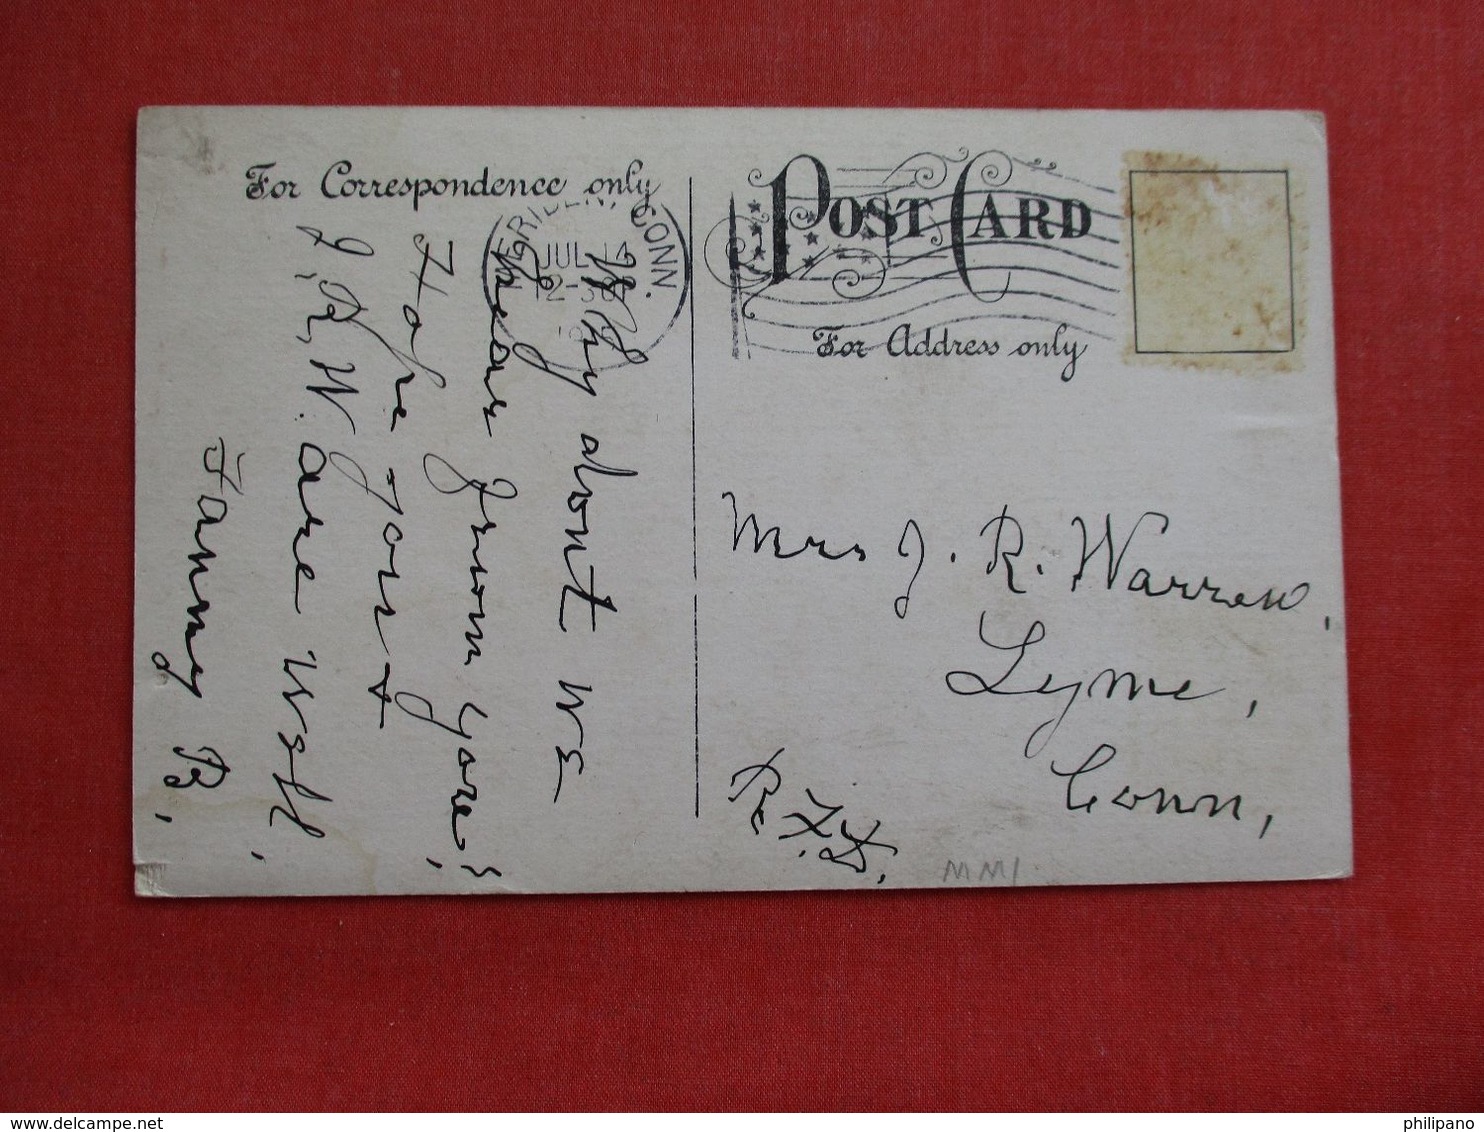 For Correspondence only
POST CARD
For Address only
MERIDEN, CONN.
JUL 14
Why dont we
hear from you?
Hope you &
J, R, W. are well,
Fanny B,
Mrs J. R. Warren,
Lyme,
Conn,
R. F. D.
MM1
delcampe.net
philipano